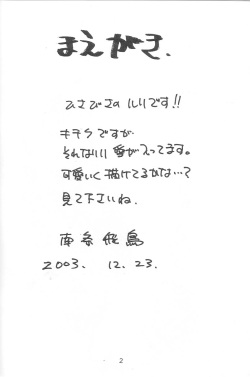 まえがき.
ひさびさのルリです!!
キチクですが
それなりに愛が入ってます。
可愛いく描けてるかな…?
見て下さいね.
南条飛鳥
2003. 12. 23.
2